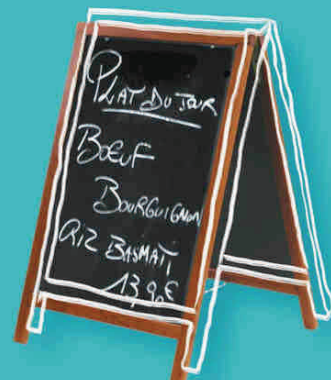 PLAT DU JOUR
BŒUF
BOURGUIGNON
RIZ BASMATI
13,90€